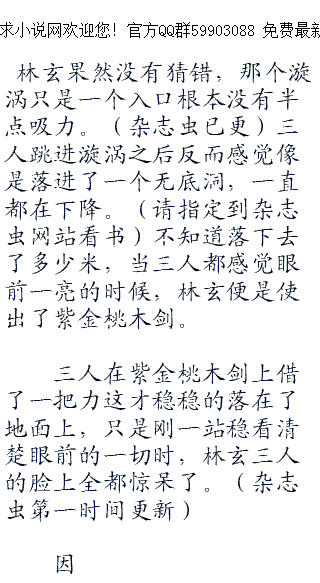 求小说网欢迎您！官方QQ群59903088 免费最新
林玄果然没有猜错，那个漩
涡只是一个入口根本没有半
点吸力。（杂志虫已更）三
人跳进漩涡之后反而感觉像
是落进了一个无底洞，一直
都在下降。（请指定到杂志
虫网站看书）不知道落下去
了多少米，当三人都感觉眼
前一亮的时候，林玄便是使
出了紫金桃木剑。
三人在紫金桃木剑上借
了一把力这才稳稳的落在了
地面上，只是刚一站稳看清
楚眼前的一切时，林玄三人
的脸上全都惊呆了。（杂志
虫第一时间更新）
因